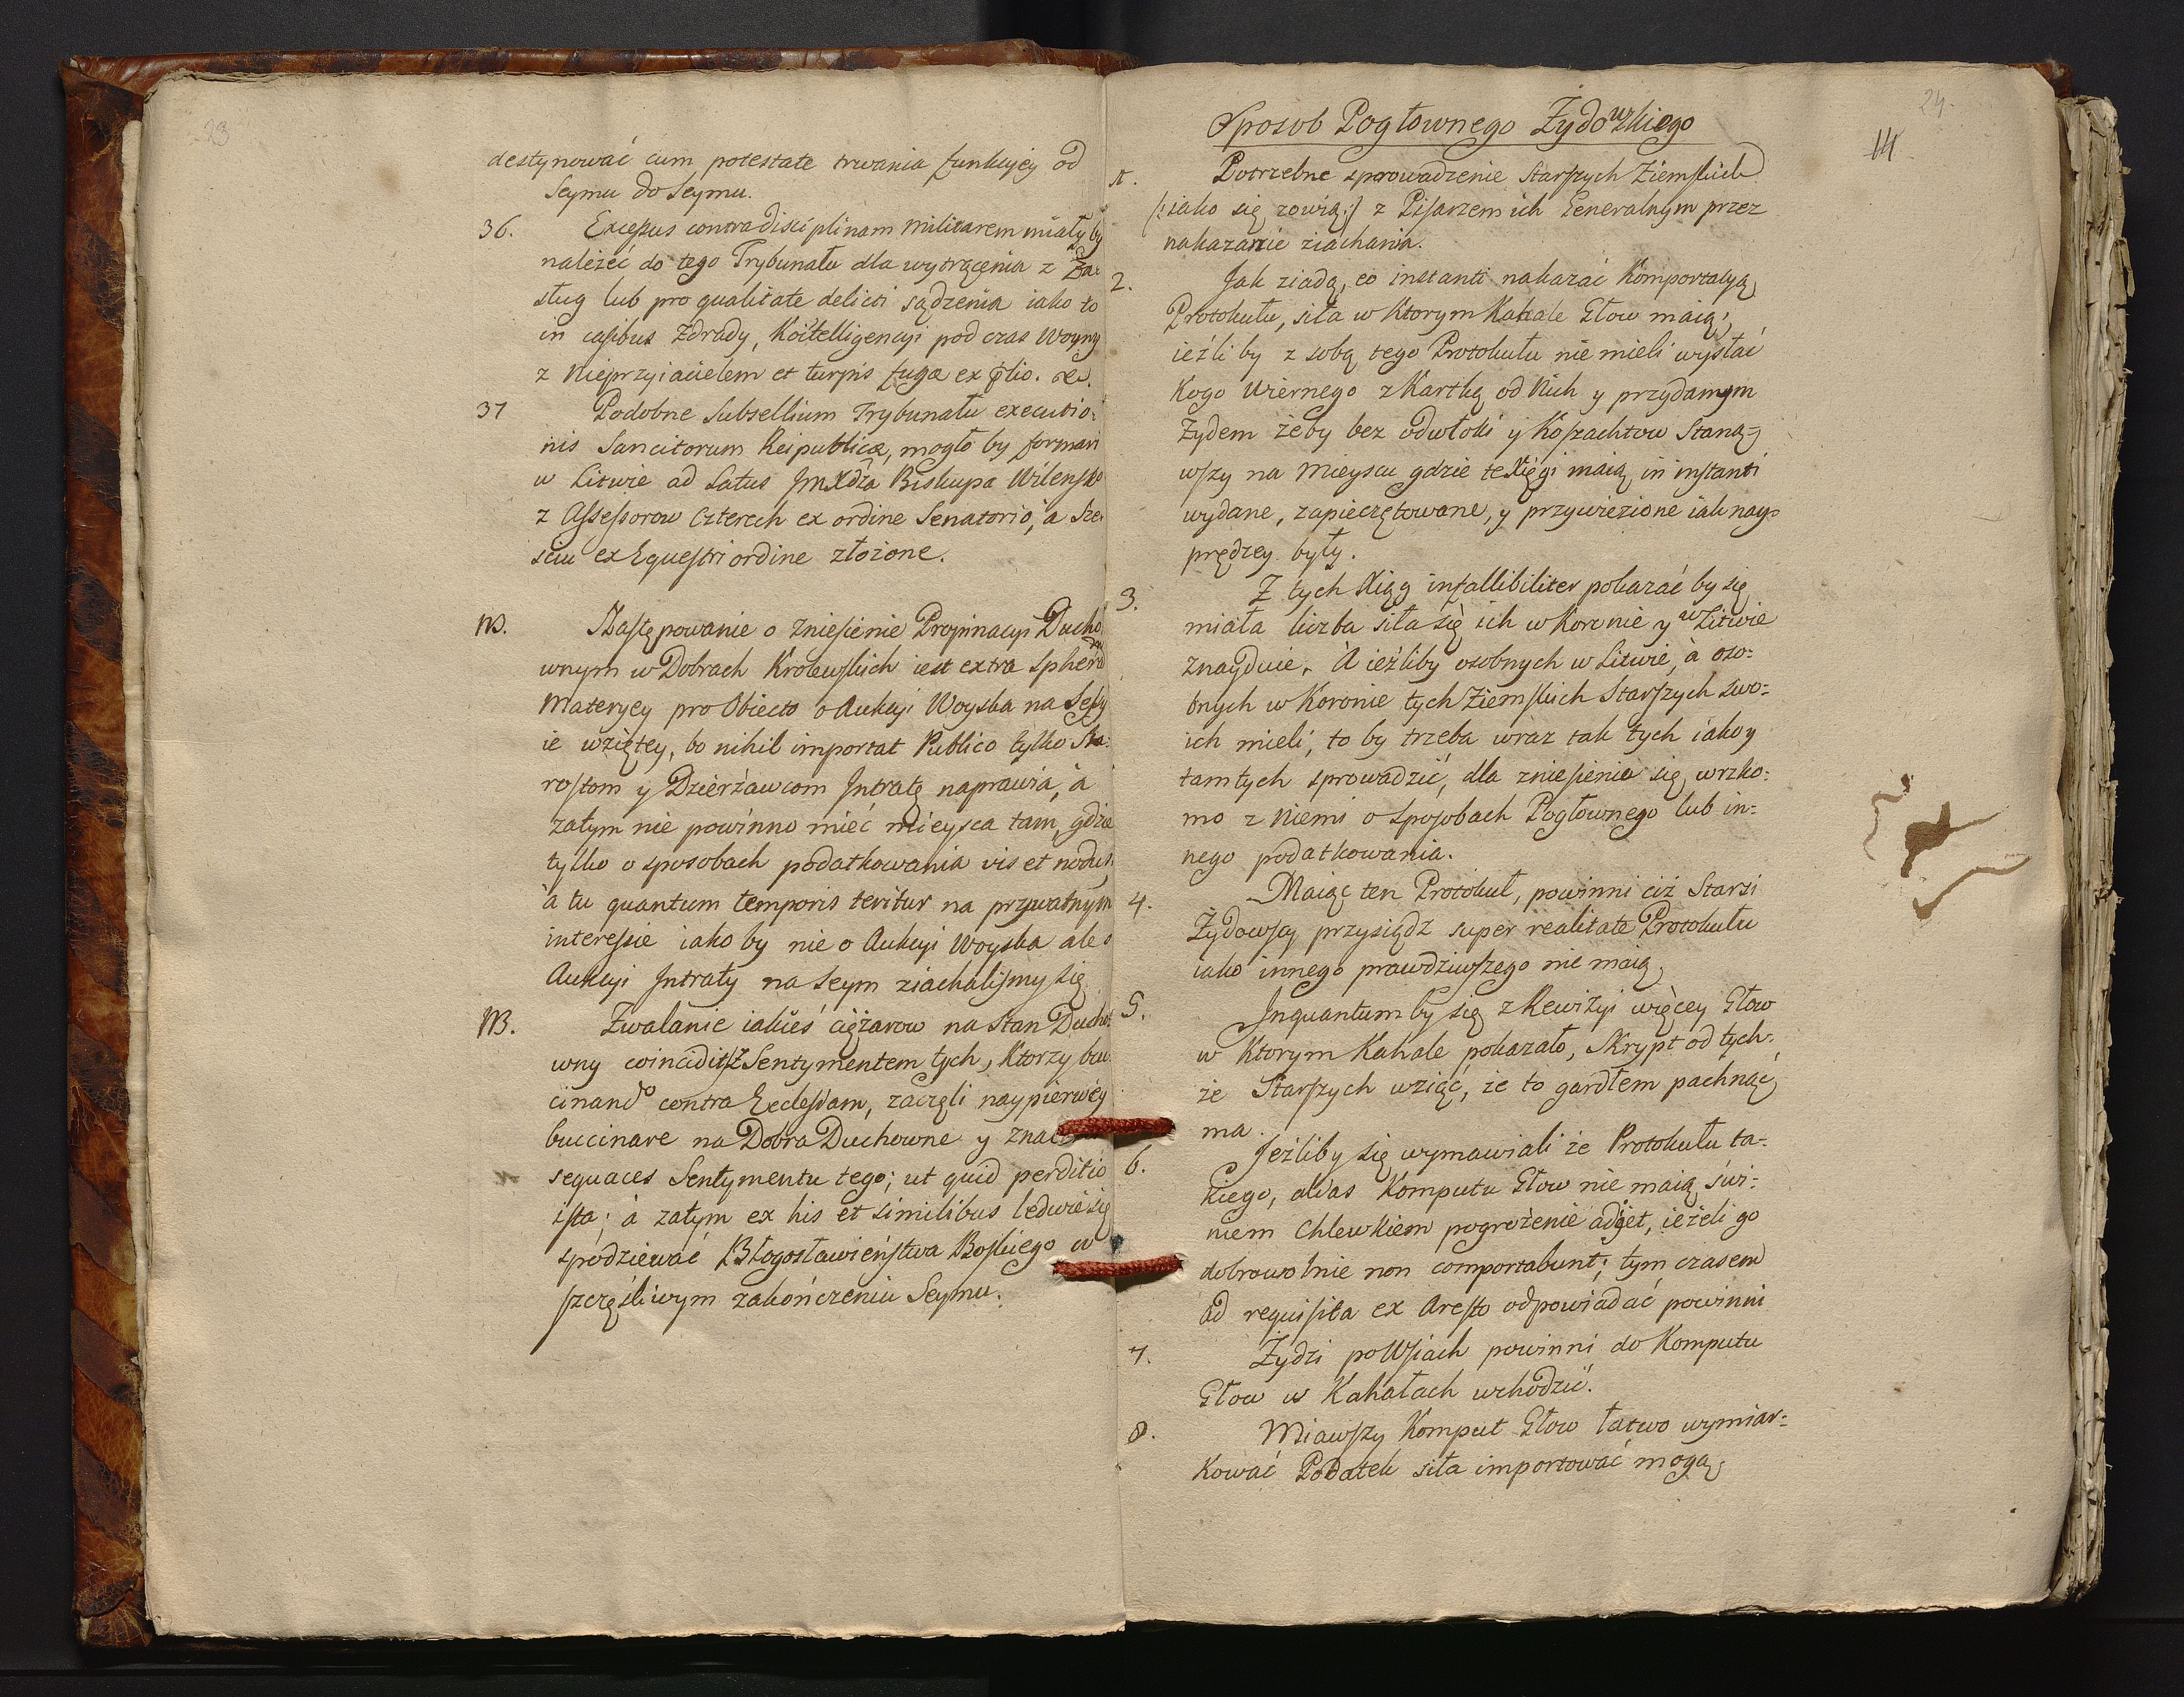 23
destynować cum potestate trwania funkcyey od
Seymu do Seymu.
36. Excessus contra disciplinam militarem miały by
należéć do tego Trybunału dla wytrącenia z Za:
sług lub pro qualitate delicti sądzenia iako to
in casibus Zdrady, Koitelligencyi pod czas Woyny
z Nieprzyiacielem et turpis fugæ ex plio. &c.
37 Podobne Subsellium Trybunału executio:
nis Sancitorum Reipublicæ, mogło by formari
w Litwie ad Latus JmXdza Biskupa Wileńsk°
z Assessorow Czterech ex ordine Senatorio, a Sze:
sciu ex Equestri ordine złożone.
NB. Następowanie o zniesienie Propinacyi Ducho
wnym w Dobrach Krolewskich iest extra Spheram
Materyey pro Obiecto o Aukcyi Woyska na Sessy
ie wziętey, bo nihil importat Publico tylko Sta:
rostom y Dzierżawcom Intratę naprawia, à
zatym nie powinno mieć mieysca tam, gdzie
tylko o sposobach podatkowania vis et nodus,
à tu quantum temporis teritur na prywatnym
interessie iako by nie o Aukcyi Woyska ale o
Aukcyi Intraty na Seym ziachalismy się
NB. Zwalanie iakieś ciężarow na Stan Ducho:
wny coincidit z Sentymentem tych, Ktorzy buc
cinando contra Ecclesiam, zaczęli naypierwéy
buccinare na Dobra Duchowne y
sequaces Sentymentu tego; ut quid perditio
ista; à zatym ex his et similibus ledwie się
spodziewać Błogosławieństwa Boskiego w
szczęśliwym zakończeniu Seymu.
24.
14.
Sposob Pogłownego Żydowskiego
1. Potrzebne sprowadzenie Starszych Ziemskich
/:iako się zowią:/ z Pisarzem ich Generalnym przez
nakazanie ziachania.
2. Jak ziadą, eo instanti nakazać Komportacyą
Protokułu, siła w Ktorym Kahale Głow maią;
ieźli by z sobą tego Protokułu nie mieli wysłać
Kogo Wiernego z Kartką od Nich y przydanym
Żydem żeby bez odwłoki y Koszachtow Staną:
wszy na Mieyscu gdzie te Xięgi maią, in instanti
wydane, zapieczętowane, y przywiezione iak nay:
prędzey były.
3. Z tych Xiąg infallibiliter pokazać by się
miała liczba siła się ich w Koronie y w Litwie
znayduie. A ieźliby osobnych w Litwie, à oso:
bnych w Koronie tych Ziemskich Starszych swo:
ich mieli, to by trzeba wraz tak tych iako y
tamtych sprowadzić, dla zniesienia się wrzko:
mo z Niemi o Sposobach Pogłownego lub in:
nego podatkowania.
4. Maiąc ten Protokuł, powinni ciż Starsi
Żydowscy przysiądz super realitate Protokułu
iako innego prawdziwszego nie maią,
5. Inquantum by się z Rewizyi więcey Głow
w Ktorym Kahale pokazało, Skrypt od tych:
że Starszych wziąć, że to gardłem pachnąć
ma.
6. Jeźliby się wymawiali że Protokułu ta:
kiego, alias Komputu Głow nie maią, swi:
niem Chlewkiem pogrożenie adiget, ieżeli go
dobrowolnie non comportabunt; tym czasem
ad requisita ex Aresto odpowiadać powinni
7. Żydzi po Wsiach powinni do Komputu
Głow w Kahałach wchodzić.
8. Miawszy Komput Głow łatwo wymiar:
kować Podatek siła importować mogą,